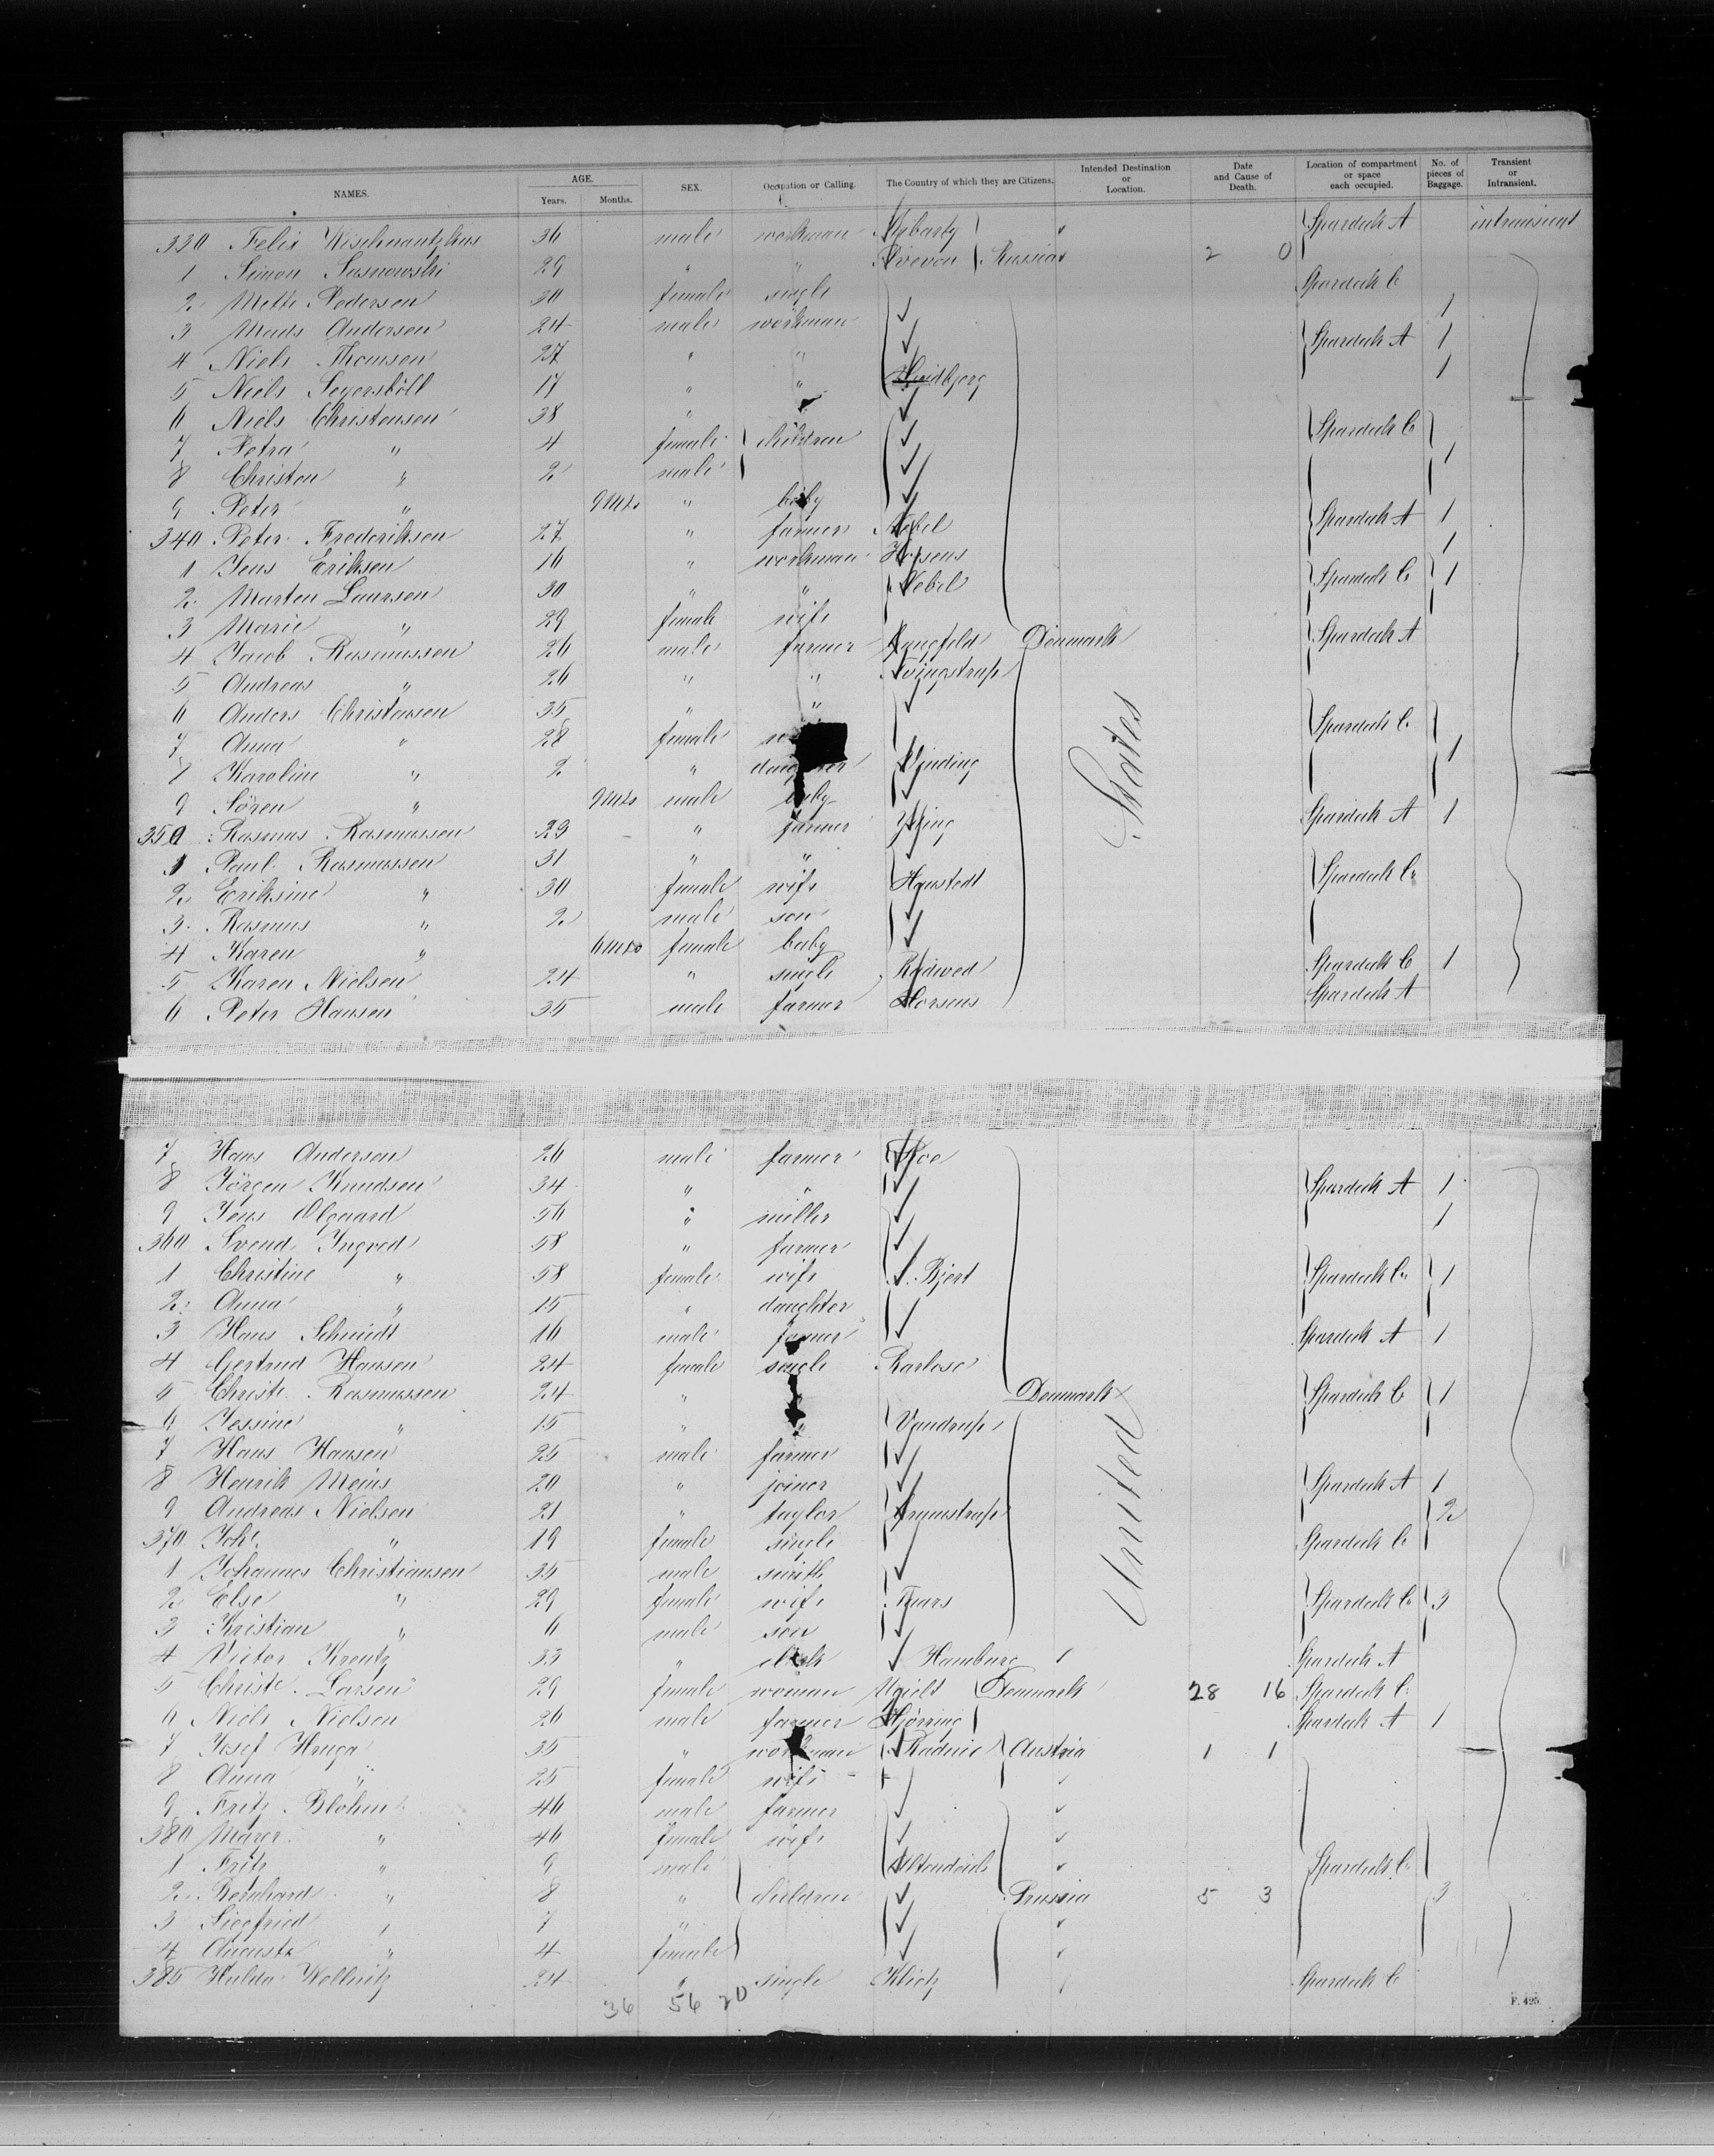 NAMES. AGE. Years. Months. SEX. Occupation or Calling. The Country of which they are Citizens. Intended Destination or Location. Date and Cause of Death. Location of compartment or space each occupied. No. of pieces of Baggage. Transient or Intransient.
330 Felix 36 male workman Spardeck A intransient
1 Simon Sasnowski 29 " " Russia 2 0
2 Mette Pedersen 30 female single Spardeck C
3 Mads Andersen 24 male workman 1
4 Niels Thomsen 27 " " Spardeck A 1
5 Niels 17 " " 1
6 Niels Christensen 38 "
7 Petra " 4 female children Spardeck C
8 Christen " 2 male 1
9 Peter " 9 mts " baby
340 Peter Frederiksen 27 " farmer Nebel Spardeck A 1
1 Jens Eriksen 16 " workman Horsens 1
2 Marten Laursen 30 " " Nebel Spardeck C 1
3 Marie " 29 female wife
4 Jacob Rasmussen 26 male farmer Denmark Spardeck A
5 Andreas " 26 " "
6 Anders Christensen 35 " "
7 Anna " 28 female Spardeck C
8 Karoline " 2 " daughter 1
9 Sören " 9 mts male baby
350 Rasmus Rasmussen 29 " farmer Spardeck A 1
1 Paul Rasmussen 31 " "
2 Eriksine " 30 female wife Spardeck C
3 Rasmus " 2 male son
4 Karen " 6 mts female baby
5 Karen Nielsen 24 " single Spardeck C 1
6 Peter Hansen 35 male farmer Horsens Spardeck A
States
7 Hans Andersen 26 male farmer
8 Jörgen Knudsen 34 " " Spardeck A 1
9 Jens Olgaard 56 " miller 1
360 Svend Ingved 58 " farmer
1 Christine " 58 female wife Bjert Spardeck C 1
2 Anna " 15 " daughter
3 Hans Schmidt 16 male farmer Spardeck A 1
4 Gertrud Hansen 24 female single
5 Christe. Rasmussen 24 " Denmark Spardeck C 1
6 Jessine " 15 " " Vamdrup
7 Hans Hansen 25 male farmer
8 Henrik Meins 20 " joiner Spardeck A 1
9 Andreas Nielsen 21 " taylor 2
370 Joh. " 19 female single Spardeck C
1 Johannes Christiansen 35 male smith
2 Else " 29 female wife Spardeck C 3
3 Kristian " 6 male son
4 Victor Kreutz 33 " clerk Hamburg Spardeck A
5 Christe. Larsen 29 female woman Denmark 28 16 Spardeck C
6 Niels Nielsen 26 male farmer Hjörring Spardeck A 1
7 Josef Hruza 35 " workman Austria 1 1
8 Anna " 25 female wife
9 Fritz Blohm 46 male farmer
380 " 46 female wife
1 Fritz " 9 male Spardeck C
2 Bernhard " 8 " children Prussia 5 3 3
3 Siegfried " 7 "
4 Augusta " 4 female
385 Hulda 24 " single Spardeck C
United
36 56 20
F. 425.